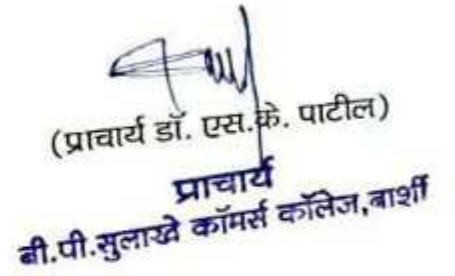 (प्राचार्य डॉ. एस.के. पाटील)
प्राचार्य
बी.पी.सुलाखे कॉमर्स कॉलेज,बार्शी